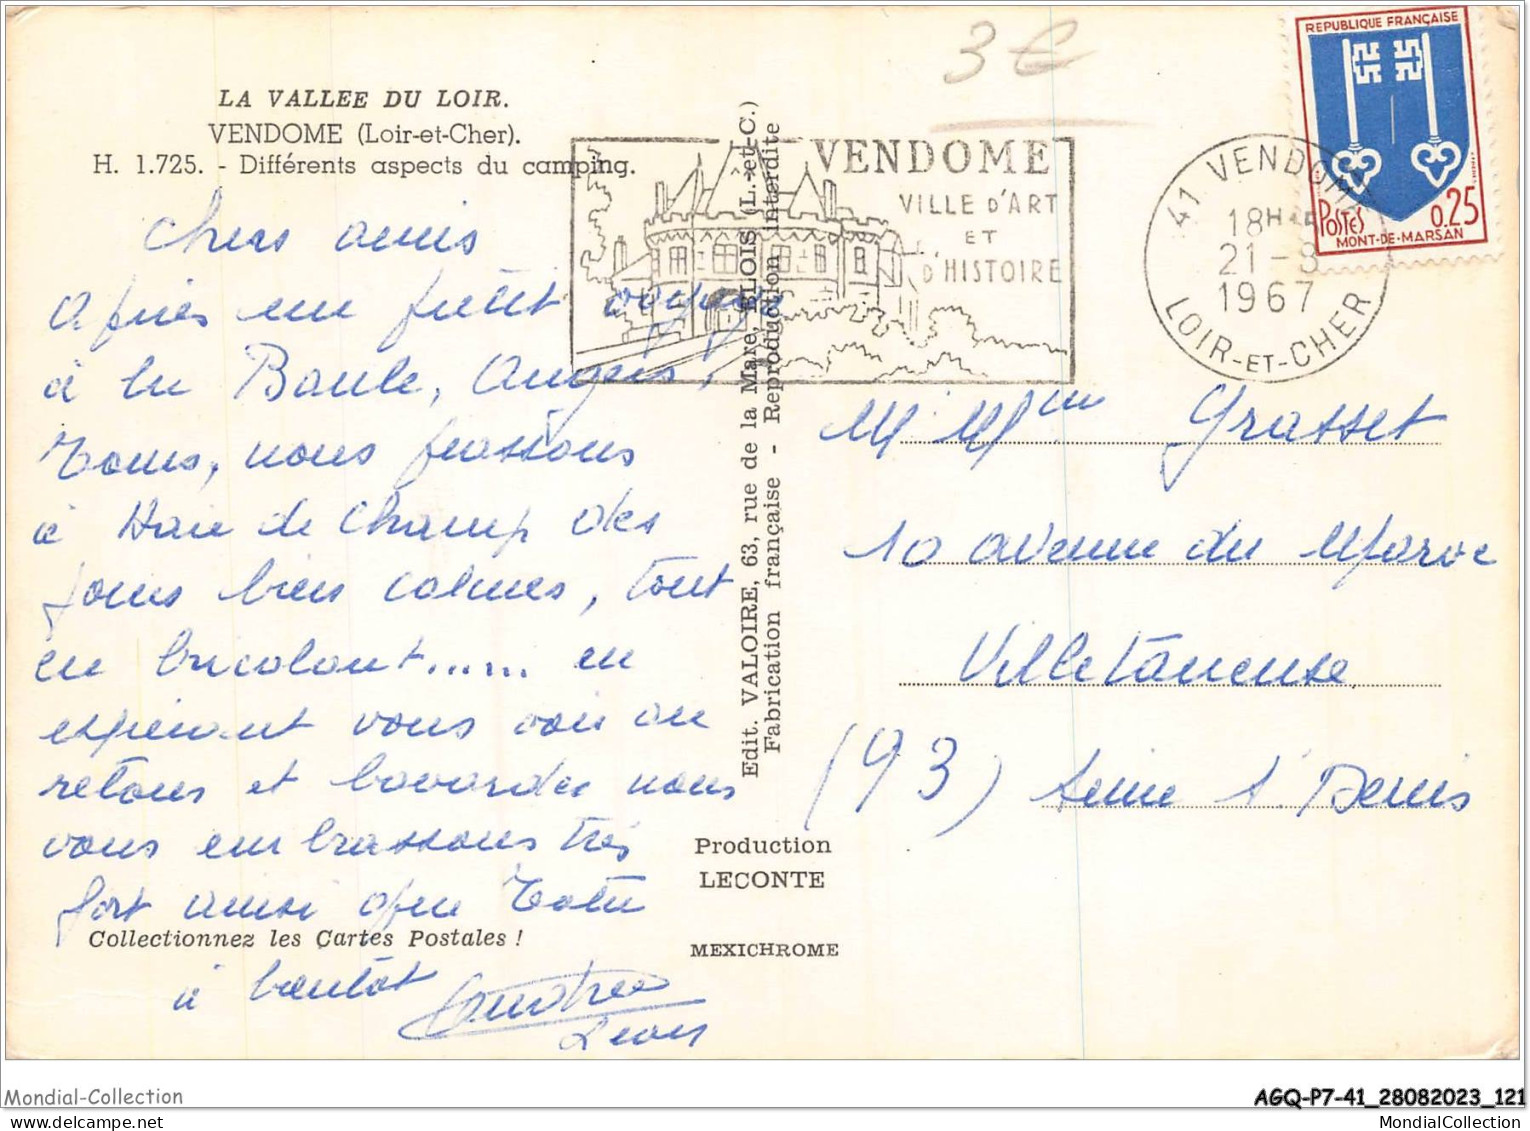 3 €
LA VALLEE DU LOIR.
VENDOME (Loir-et-Cher).
H. 1.725. - Différents aspects du camping.
Chers amis
Après un petit voyage
à la Baule, Angers,
Tours, nous passons
à Haie de Champ des
jours bien calmes, tout
en bricolant...... en
espérant vous voir au
retour et bavarder nous
vous embrassons très
fort ainsi que
Collectionnez les Cartes Postales !
à bientôt
Andrée
Léon
Edit. VALOIRE, 63, rue de la Mare, BLOIS (L.-et-C.)
Fabrication française - Reproduction interdite
Production
LECONTE
MEXICHROME
VENDOME
VILLE D'ART
ET
D'HISTOIRE
41 VENDOME
18H
21-8
1967
LOIR-ET-CHER
REPUBLIQUE FRANÇAISE
POSTES
0.25
MONT-DE-MARSAN
M Mme Grasset
10 avenue du Maroc
Villetaneuse
(93) Seine S. Denis
Mondial-Collection
AGQ-P7-41_28082023_121
MondialCollection